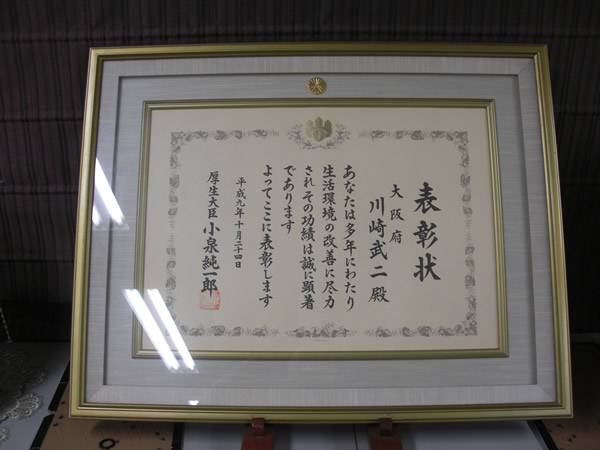 表彰状
大阪府
川崎武二殿
あなたは多年にわたり
生活環境の改善に尽力
されその功績は誠に顕著
であります
よってここに表彰します
平成九年十月二十四日
厚生大臣 小泉純一郎